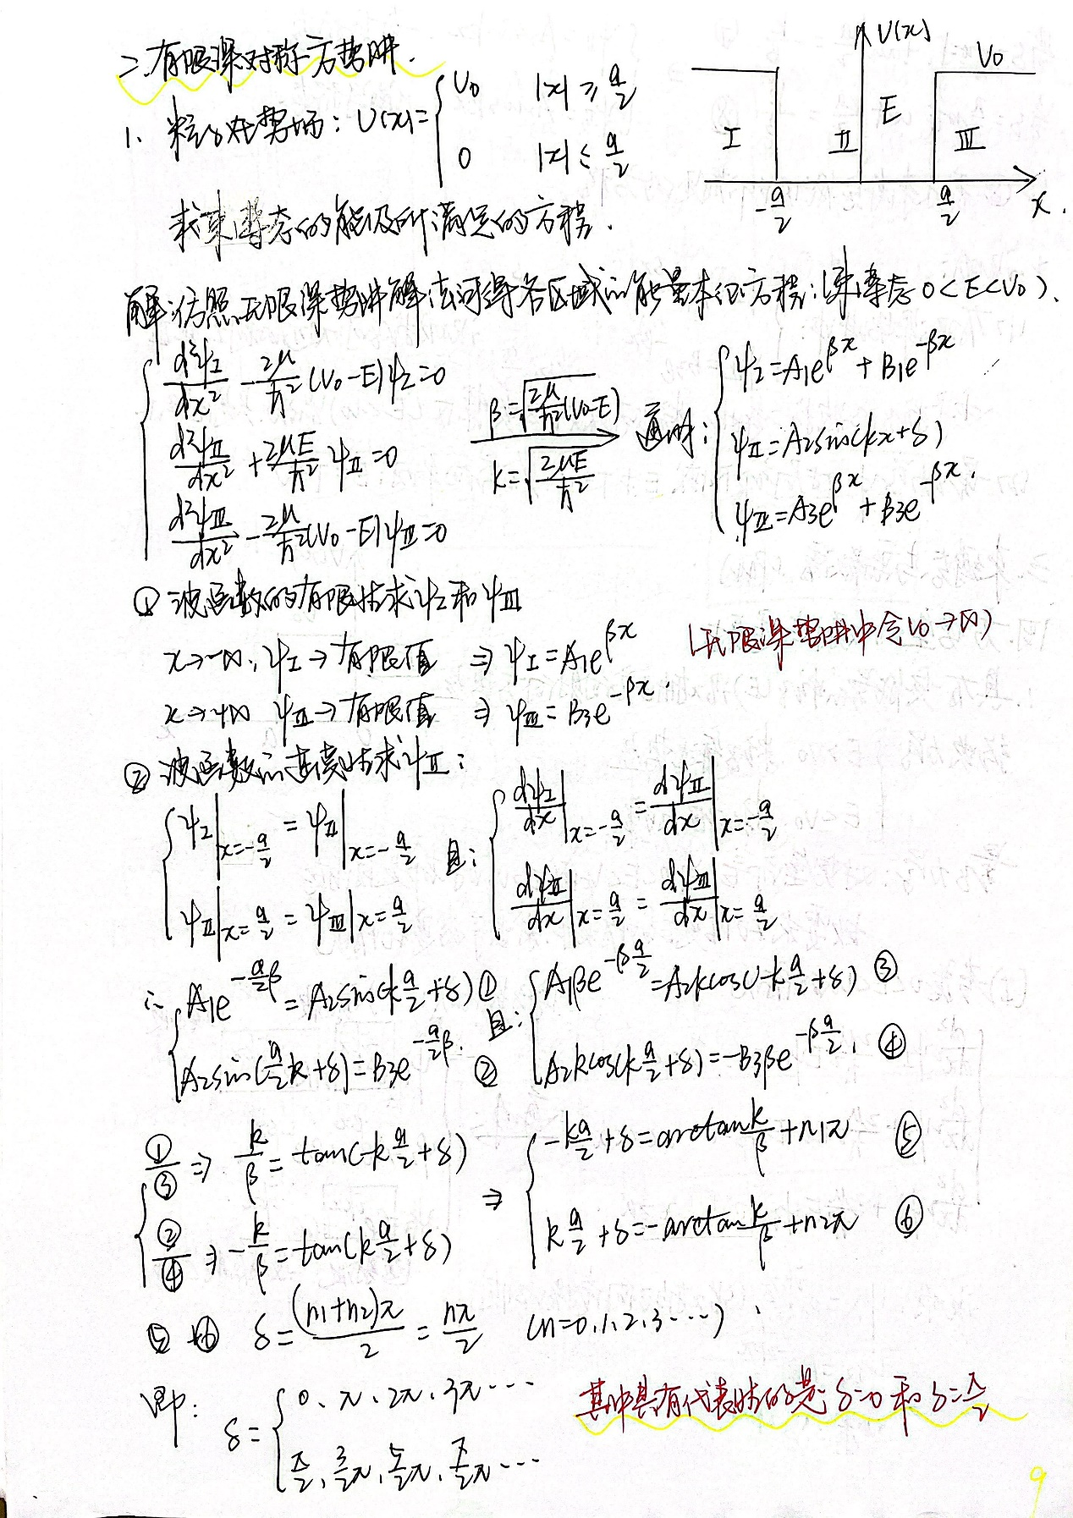 二.有限深对称方势阱.
1. 粒子处势场: U(x)= { U₀ |x| ≥ a/2
0 |x| ≤ a/2
U(x) V₀ E I II III -a/2 a/2 x.
求束缚态的能级所满足的方程.
解:仿照无限深势阱解法可得各区域的能量本征方程:(束缚态 0<E<V₀).
d²ψ_I/dx² - 2μ/ħ² (V₀-E)ψ_I=0
d²ψ_II/dx² + 2μE/ħ² ψ_II=0
d²ψ_III/dx² - 2μ/ħ² (V₀-E)ψ_III=0
β=√(2μ/ħ² (V₀-E))
k=√(2μE/ħ²)
通解: { ψ_I=A₁e^{βx}+B₁e^{-βx}
ψ_II=A₂sin(kx+δ)
ψ_III=A₃e^{βx}+B₃e^{-βx}.
① 波函数的有限性求ψ_I和ψ_III
(无限深势阱中令V₀→∞)
x→-∞, ψ_I→有限值 ⇒ ψ_I=A₁e^{βx}
x→+∞ ψ_III→有限值 ⇒ ψ_III=B₃e^{-βx}.
② 波函数的连续性求ψ_II:
ψ_I|x=-a/2 = ψ_II|x=-a/2 且: { dψ_I/dx|x=-a/2 = dψ_II/dx|x=-a/2
ψ_II|x=a/2 = ψ_III|x=a/2 dψ_II/dx|x=a/2 = dψ_III/dx|x=a/2
∴ { A₁e^{-a/2 β}=A₂sin(-k a/2+δ) ① 且: { A₁βe^{-β a/2}=A₂kcos(-k a/2+δ) ③
A₂sin(a/2 k+δ)=B₃e^{-a/2 β}. ② A₂kcos(k a/2+δ)=-B₃βe^{-β a/2}. ④
①/③ ⇒ k/β=tan(-k a/2+δ) ⇒ { -k a/2+δ=arctan k/β+n₁π ⑤
②/④ ⇒ -k/β=tan(k a/2+δ) k a/2+δ=-arctan k/β+n₂π ⑥
⑤+⑥ δ=(n₁+n₂)π/2=nπ/2 (n=0,1,2,3⋯)
即: δ= { 0、π、2π、3π⋯
π/2, 3/2π, 5/2π, 7/2π⋯
其中具有代表性的是: δ=0 和 δ=π/2
9